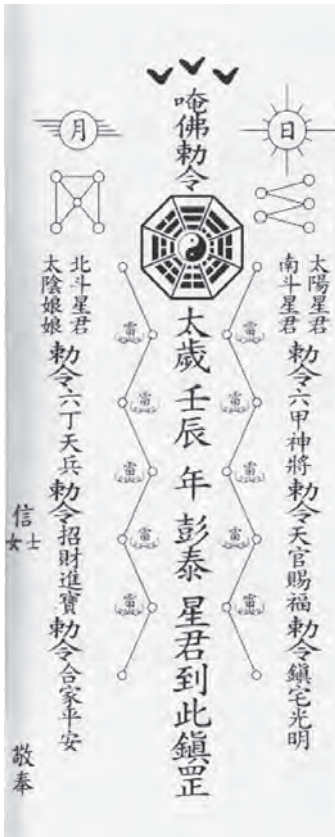 日
太陽星君
南斗星君
勅令六甲神將勅令天官賜福勅令鎮宅光明
唵佛勅令
太歲壬辰年彭泰星君到此鎮罡
雷
雷
雷
雷
雷
雷
雷
雷
雷
雷
月
北斗星君
太陰娘娘
勅令六丁天兵勅令招財進寶勅令合家平安
信士
女
敬奉